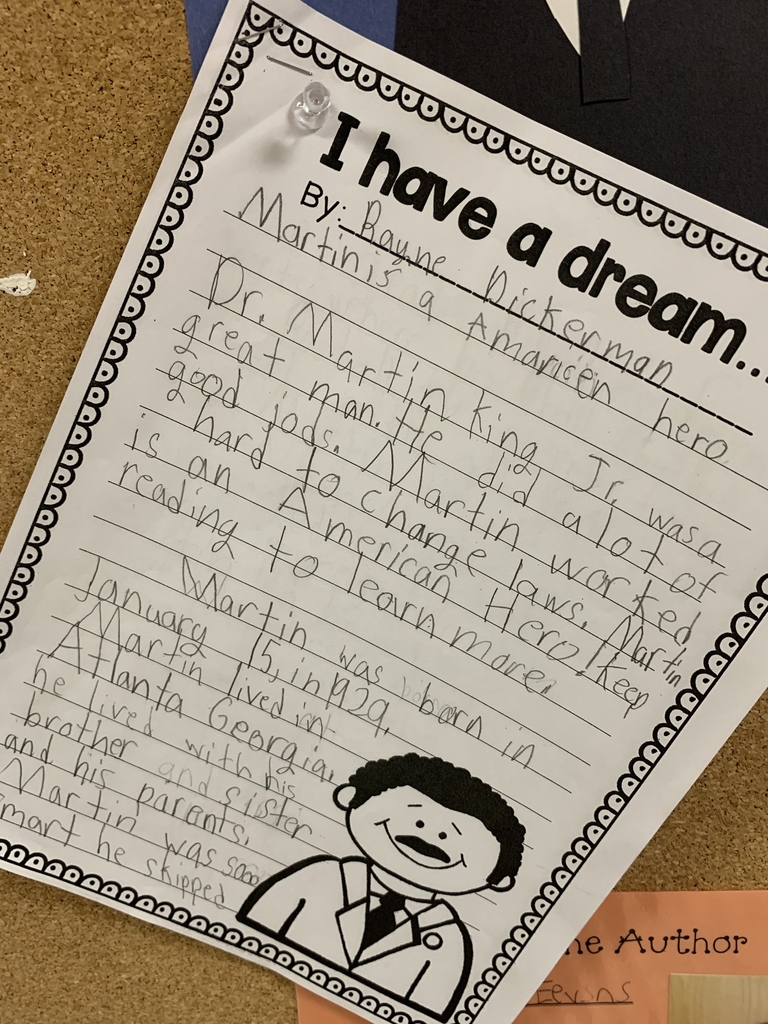 I have a dream...
By: Rayne Dickerman
Martin is a Amaricen hero
Dr. Martin king Jr. was a
great man. He did a lot of
good jods. Martin worked
hard to change laws. Martin
is an American Hero! Keep
reading to learn more.
Martin was born in
January 15, in 1929.
Martin lived in
Atlanta Georgia.
he lived with his
brother and sister
and his parents.
Martin was sooo
smart he skipped
he Author
Fevins